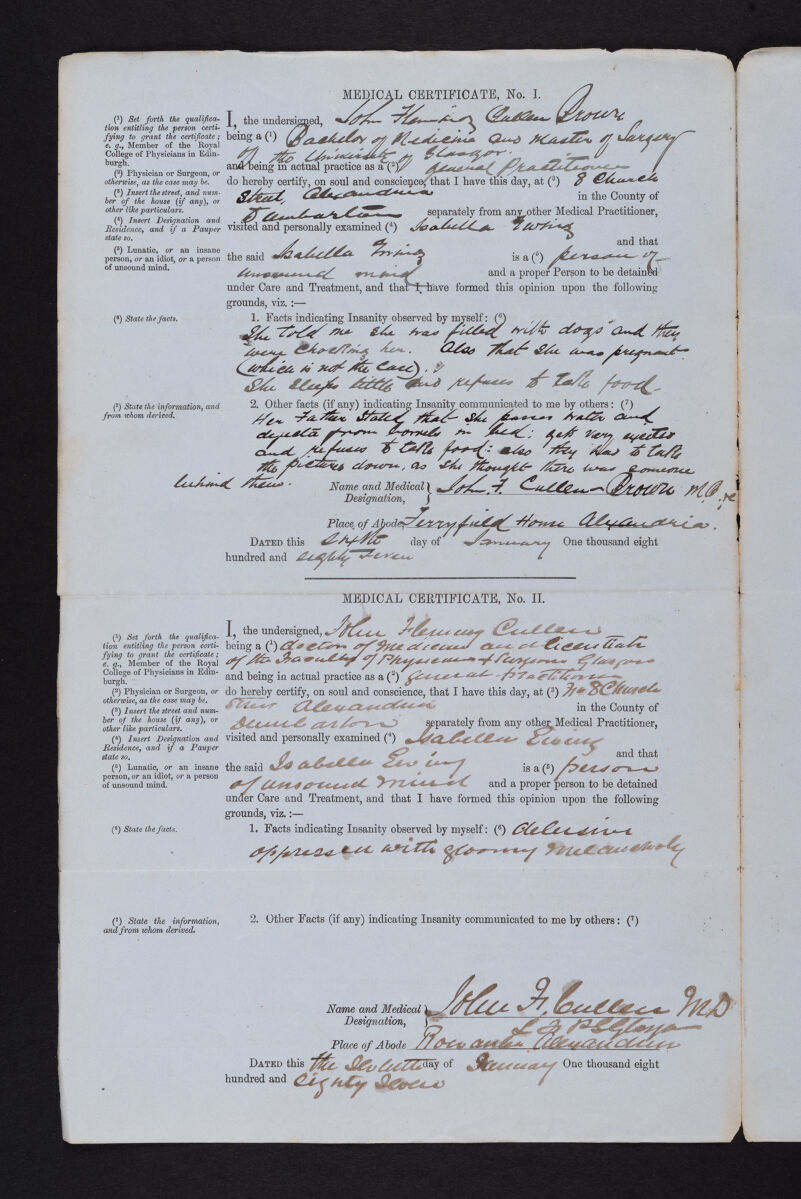 MEDICAL CERTIFICATE, No. I.
(¹) Set forth the qualifica-
tion entitling the person certi-
fying to grant the certificate;
e. g., Member of the Royal
College of Physicians in Edin-
burgh.
(²) Physician or Surgeon, or
otherwise, as the case may be.
(³) Insert the street, and num-
ber of the house (if any), or
other like particulars.
(⁴) Insert Designation and
Residence, and if a Pauper
state so.
(⁵) Lunatic, or an insane
person, or an idiot, or a person
of unsound mind.
I, the undersigned, John Fleming Cullen Brown
being a (¹) Bachelor of Medicine and Master of Surgery
of the University of Glasgow
and being in actual practice as a (²) general Practitioner
do hereby certify, on soul and conscience, that I have this day, at (³) 8 Church
Street, Alexandria in the County of
Dumbarton separately from any other Medical Practitioner,
visited and personally examined (⁴) Isabella Ewing
and that
the said Isabella Ewing is a (⁵) person of
unsound mind and a proper Person to be detained
under Care and Treatment, and that I have formed this opinion upon the following
grounds, viz. :—
(⁶) State the facts.
1. Facts indicating Insanity observed by myself: (⁶)
She told me she was filled with dogs and they
were choking her. Also that she was pregnant
(which is not the case).
She sleeps little and refuses to take food.
(⁷) State the information, and
from whom derived.
2. Other facts (if any) indicating Insanity communicated to me by others: (⁷)
Her Father states that she passes water and
dejecta from bowels in bed: gets very excited
and refuses to take food: also they had to take
the pictures down, as she thought there was someone
behind them.
Name and Medical Designation, John F. Cullen Brown M.B.
Place of Abode Ferryfield House Alexandria.
DATED this sixth day of January One thousand eight
hundred and eighty seven
MEDICAL CERTIFICATE, No. II.
(¹) Set forth the qualifica-
tion entitling the person certi-
fying to grant the certificate;
e. g., Member of the Royal
College of Physicians in Edin-
burgh.
(²) Physician or Surgeon, or
otherwise, as the case may be.
(³) Insert the street and num-
ber of the house (if any), or
other like particulars.
(⁴) Insert Designation and
Residence, and if a Pauper
state so.
(⁵) Lunatic, or an insane
person, or an idiot, or a person
of unsound mind.
I, the undersigned, John Fleming Cullen
being a (¹) doctor of Medicine and licentiate
of the Faculty of Physicians & Surgeons Glasgow
and being in actual practice as a (²) general practitioner
do hereby certify, on soul and conscience, that I have this day, at (³) No 8 Church
Street Alexandria in the County of
Dumbarton separately from any other Medical Practitioner,
visited and personally examined (⁴) Isabella Ewing
and that
the said Isabella Ewing is a (⁵) person
of unsound mind and a proper person to be detained
under Care and Treatment, and that I have formed this opinion upon the following
grounds, viz. :—
(⁶) State the facts.
1. Facts indicating Insanity observed by myself: (⁶)
oppressed with gloomy melancholy
(⁷) State the information,
and from whom derived.
2. Other Facts (if any) indicating Insanity communicated to me by others: (⁷)
Name and Medical Designation, John F. Cullen MD
Place of Abode Alexandria
DATED this the day of January One thousand eight
hundred and eighty seven